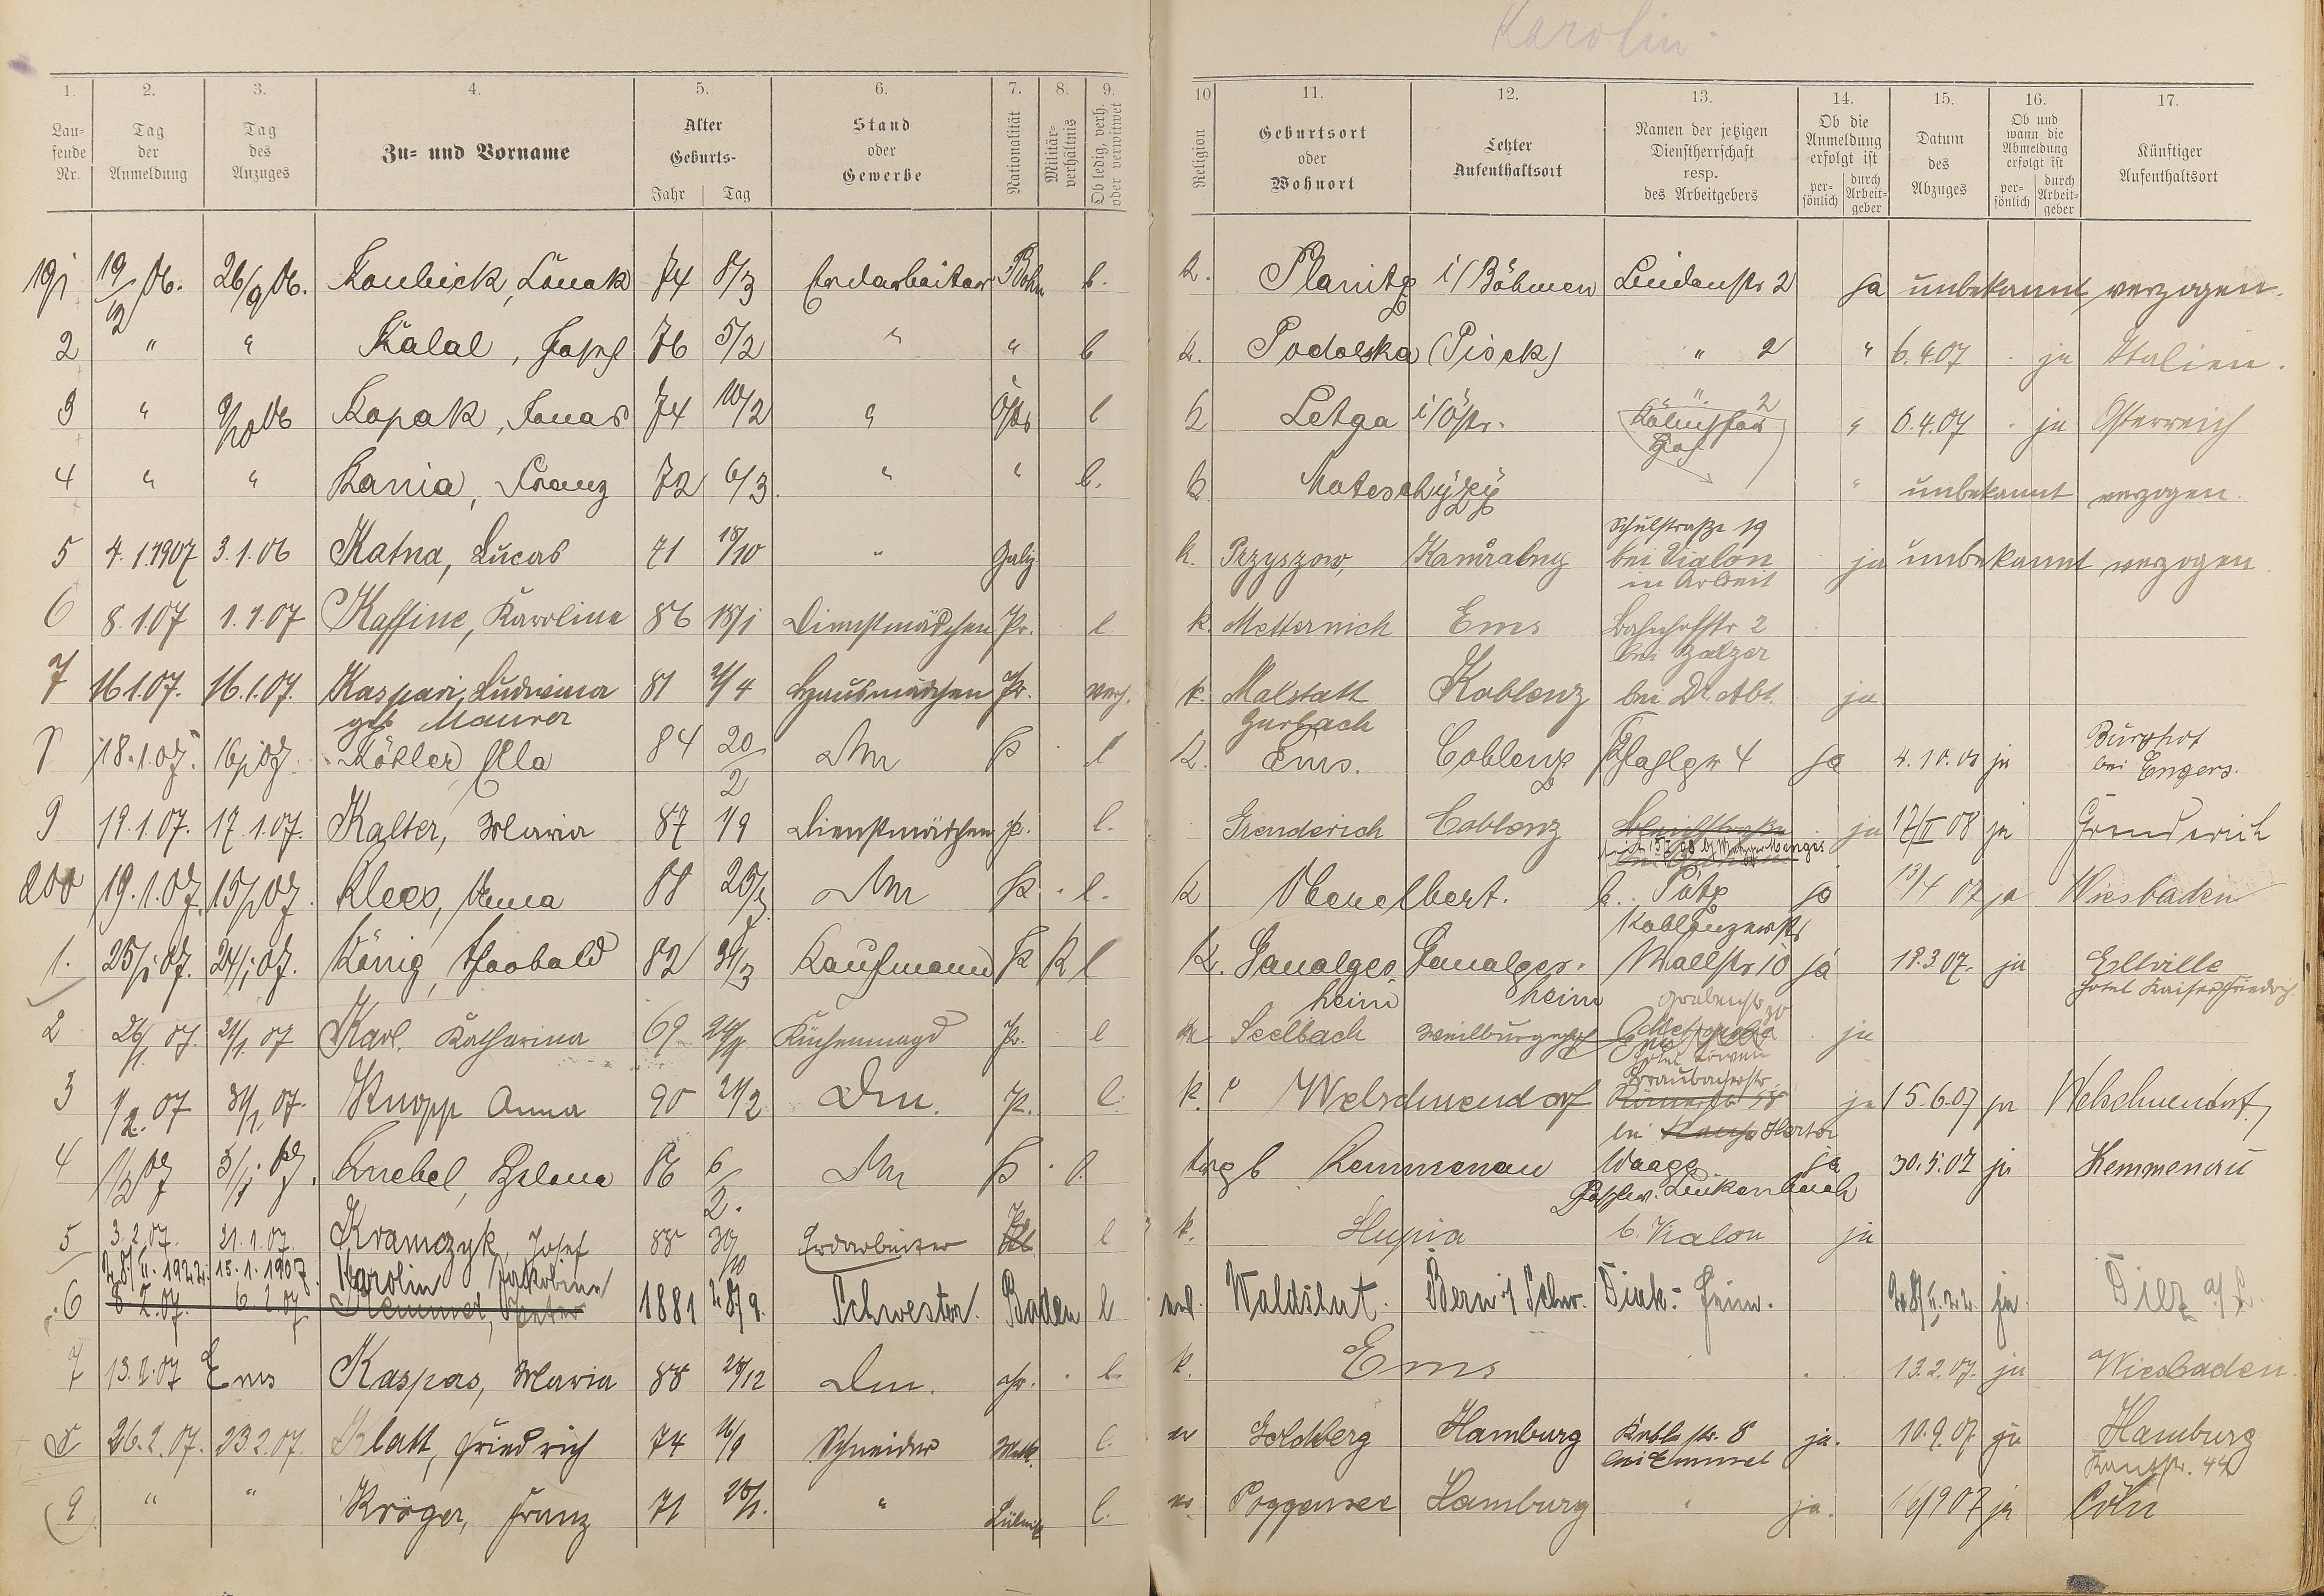 Karolin
1. 2. 3. 4. 5. 6. 7. 8. 9. 10 11. 12. 13. 14. 15. 16. 17.
Lau-
fende
Nr.
Tag
der
Anmeldung
Tag
des
Anzuges
Zu- und Vorname
Alter
Geburts-
Jahr Tag
Stand
oder
Gewerbe
Nationalität
Militär-
verhältnis
Ob ledig, verh.
oder verwitwet
Religion
Geburtsort
oder
Wohnort
Letzter
Aufenthaltsort
Namen der jetzigen
Dienstherrschaft
resp.
des Arbeitgebers
Ob die
Anmeldung
erfolgt ist
per-
sönlich
durch
Arbeit-
geber
Datum
des
Abzuges
Ob und
wann die
Abmeldung
erfolgt ist
per-
sönlich
durch
Arbeit-
geber
Künftiger
Aufenthaltsort
191 19/12 06. 26/9 06. Koubick, 74 8/3 Erdarbeiter Böhm l. k. Planitz i/Böhmen Lindenstr 2 ja unbekannt verzogen.
2 " " Kalal, Josef 76 5/2 " " l k. Podolska (Pisek) " 2 " 6.4.07 ja Italien.
3 " 9/10 06 Kopak, Jonas 74 10/2 " Östr l k Letga i/Östr. " 2 " 6.4.07 ja Österreich
Hof
4 " " Kania, Franz 72 6/3. " " l. k. " unbekannt verzogen.
Schulstraße 19
5 4.1.1907 3.1.06 Katna, Lucas 71 18/10 " Galiz k. Przyszow, bei Vialon ja unbekannt verzogen
in Arbeit
6 8.1.07 1.1.07 Kaffine, Karoline 86 18/1 Dienstmädchen Pr. l k. Metternich Ems Bahnhofstr 2
bei Balzer
7 16.1.07. 16.1.07. Kaspari, Ludwina 81 21/4 Hausmädchen Pr. verh. k. Malstatt Koblenz bei Dr. Abt. ja
geb Maurer
Burbach
8 18.1.07. 16/1 07. Köhler, Ella 84 20/2 Dm P l K. Ems. Coblenz 4 ja 4.10.07 ja Burghof
bei Engers.
9 19.1.07. 17.1.07. Kalter, Maria 87 1/9 Dienstmädchen p. l. Grenderich Coblenz ja 17/II 08 ja Grenderich
200 19.1.07. 15/1 07. Klees, Anna 88 Dm P. l. K Obenelbert. b. Pütz ja 13/4 07 ja Wiesbaden
Koblenzerstr
1. 25/1 07. 24/1 07. König, Theobald 82 31/3 Kaufmann P K l K. Ganalges Ganalges- Wallstr 10 ja 18.3 07. ja Eltville
heim heim Hotel Kaiser Friedrich
Grabenstr
2 26/1 07. 21/1. 07 Karl. Katharina 69 Küchenmagd Pr. l Seelbach Weilburgerhof ja
Hotel Löwen
Braubacherstr
3 1/2. 07 31/1. 07. Knopp Anna 90 21/2 Dm. Pr. l k. Welschnendorf ja 15.6.07 ja Welschnendorf
bei Herter
4 1/2 07 3/1. 07. Knebel, Helene 86 6/2. Dm P l. Kemmenau Waage ja 30.5.07 ja Kemmenau
Linkenbach
5 3.2.07. 21.1.07. Kramczyk, Josef 88 30/10 Erdarbeiter l k. Slupia b. Vialon ja
28/II. 1922. 15.1.1907. Karolin Jakobine
6 8.2.07. 6.2.07 Kemmer, Peter 1881 28/9. Schwester Baden l ev. Waldshut. Bern i/ Schw. Diak.-Heim. 28/II.22. ja. Diez a/L.
7 13.2.07 Ems Kaspar, Maria 88 28/12 Dm. Pr. l. k. Ems 13.2.07. ja Wiesbaden.
8 26.2.07. 23.2.07. Klatt, Friedrich 74 Schneider Meck. l. ev Goldberg Hamburg Koblstr. 8 ja. 10.9.07 ja Hamburg
bei Emmel
9 " " Kröger, Franz 71 " l. ev. Poggensee Hamburg " ja. 16/9 07 ja Cöln